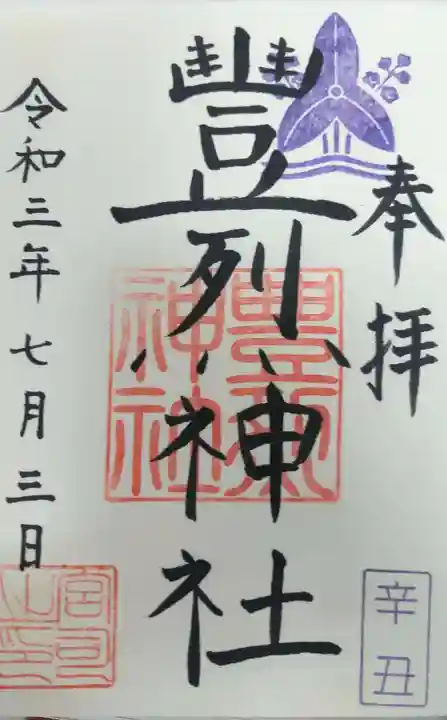 奉拝
豐烈神社
令和三年七月三日
豊烈神社
辛丑